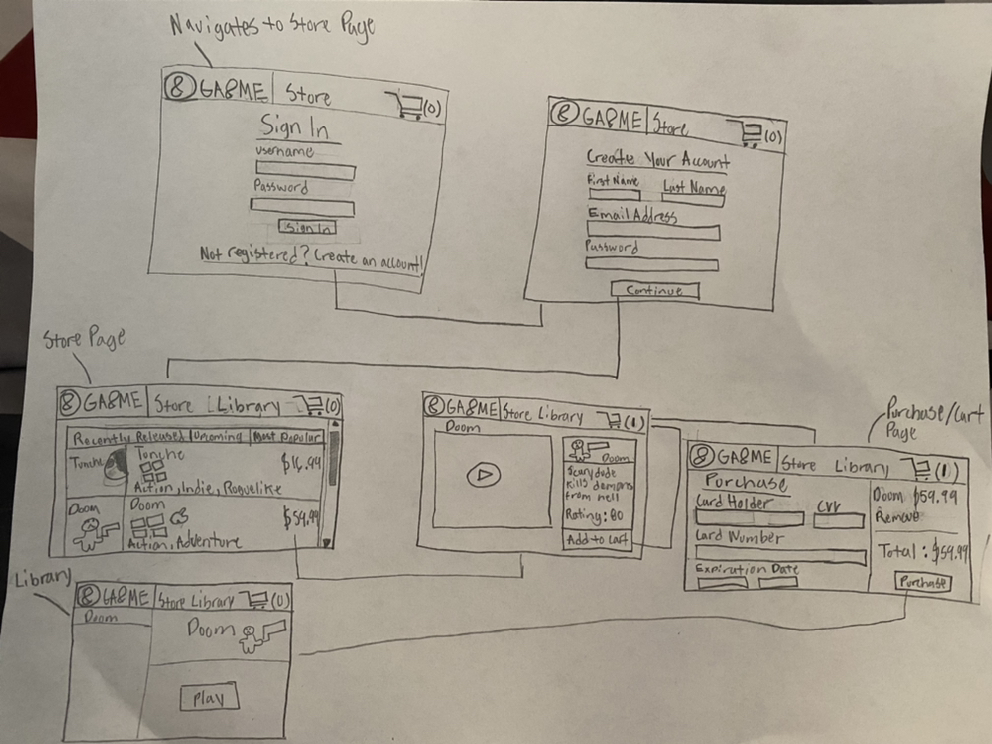 Navigates to Store Page
8 GA8ME Store (0)
Sign In
username
Password
Sign In
Not registered? Create an account!
8 GA8ME Store (0)
Create Your Account
First Name Last Name
Email Address
Password
Continue
Store Page
8 GA8ME Store Library (0)
Recently Released Upcoming Most Popular
Tunche Tunche $16.99
Action, Indie, Roguelike
Doom Doom $59.99
Action, Adventure
8 GA8ME Store Library (1)
Doom
Doom
Scary dude
kills demons
from hell
Rating: 80
Add to cart
Purchase/Cart
Page
8 GA8ME Store Library (1)
Purchase
Card Holder CVV
Card Number
Expiration Date
Doom $59.99
Remove
Total: $59.99
Purchase
Library
8 GA8ME Store Library (0)
Doom
Doom
Play